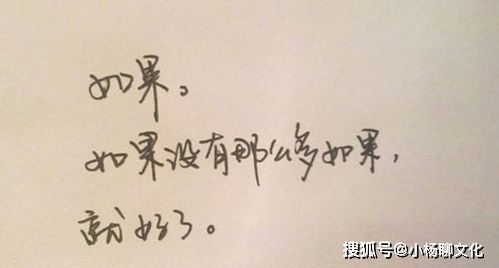 如果。
如果没有那么多如果，
就好了。
搜狐号@小杨聊文化